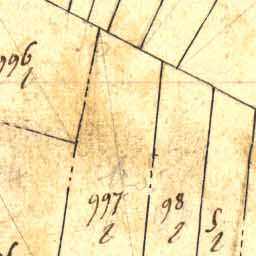 996
1
997
2
98
2
5
2